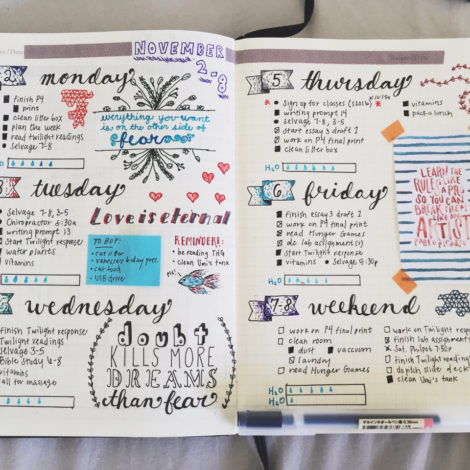 NOVEMBER
2-8
2
monday
finish P4
print
clean litter box
plan the week
read twilight readings
Selvage 7-8
everything you want
is on the other side of
fear
H2O
3
tuesday
Selvage 7-8, 3-5
Chiropractor 6:30a
writing prompt 13
Start Twilight response
water plants
vitamins
Love is eternal
TO BUY:
cat litter
vanessa's b/day pres.
cat food
USB drive
REMINDERS:
be reading THG
clean Umi's tank
wednesday
finish Twilight response
Twilight readings
Selvage 3-5
Bible Study 6-8
vitamins
call for massage
doubt
KILLS MORE
DREAMS
than fear
5
thursday
Sign up for classes (SS016)
writing prompt 14
selvage 7-8, 3-5
start essay 3 draft 1
work on P4 final print
clean litter box
vitamins
pack a lunch
H2O
LEARN THE
RULES LIKE
A PRO
SO YOU CAN
BREAK THEM
LIKE AN
ARTIST
PABLO PICASSO
6
friday
finish essay 3 draft 1
work on P4 final print
read Hunger Games
do lab assignment(s)
start Twilight response
vitamins
Selvage 5:30p
H2O
7-8
weekend
work on P4 final print
clean room
dust
vacuum
laundry
read Hunger Games
work on Twilight resp
finish lab assignment
Sat. Philpot 7:30p
finish Twilight reading
do pitch slide deck
clean Umi's tank
H2O
H2O